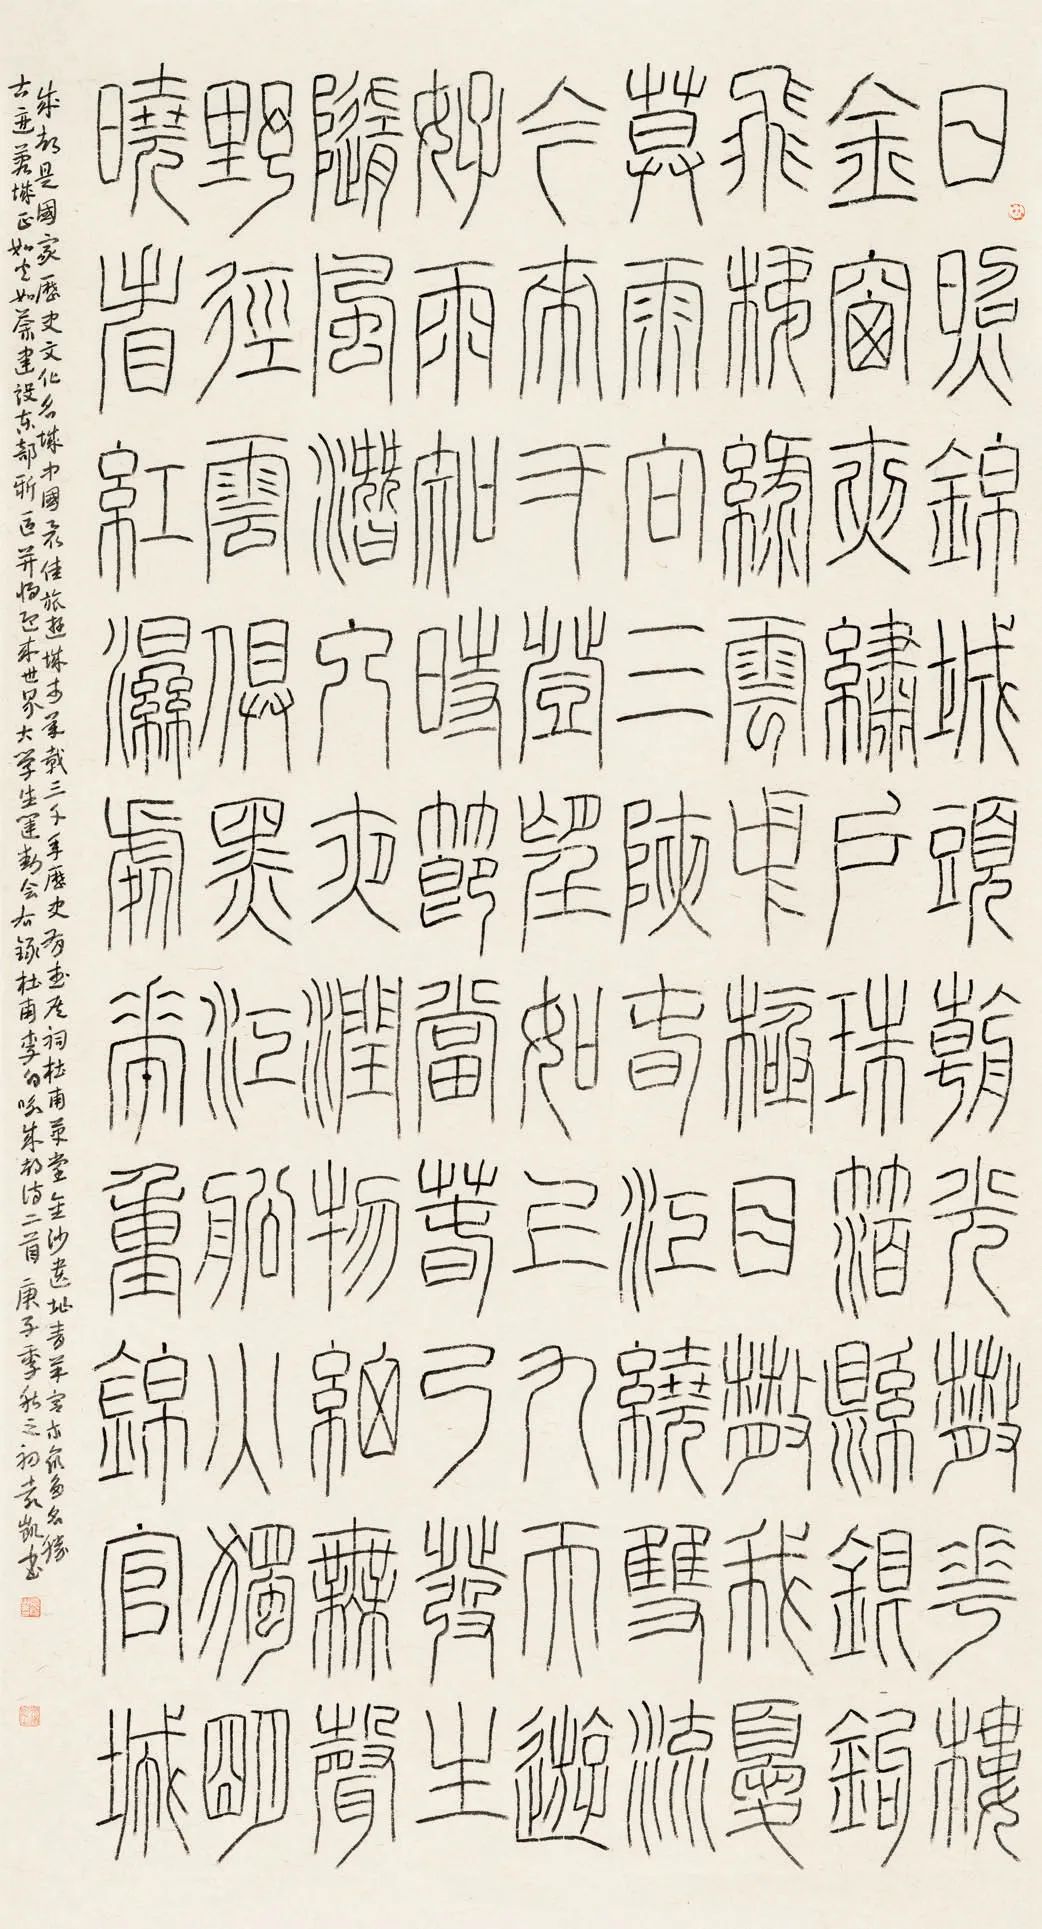 日照錦城頭朝光散花樓
金窗夾繡戶珠箔縣銀鉤
飛梯綠雲中極目散我憂
莫雨向三陝春江繞雙流
今來一登望如上九天遊
好雨知時節當春乃發生
隨風潛入夜潤物細無聲
野徑雲俱黑江船火獨明
曉看紅濕處花重錦官城
成都是國家歷史文化名城中國最佳旅遊城市筆載三千年歷史有武侯祠杜甫草堂金沙遺址青羊宮
古 城正如火如荼建設東部新區并將迎來世界大學生運動會右錄杜甫李白咏成都詩二首庚子季秋之初袁凱書